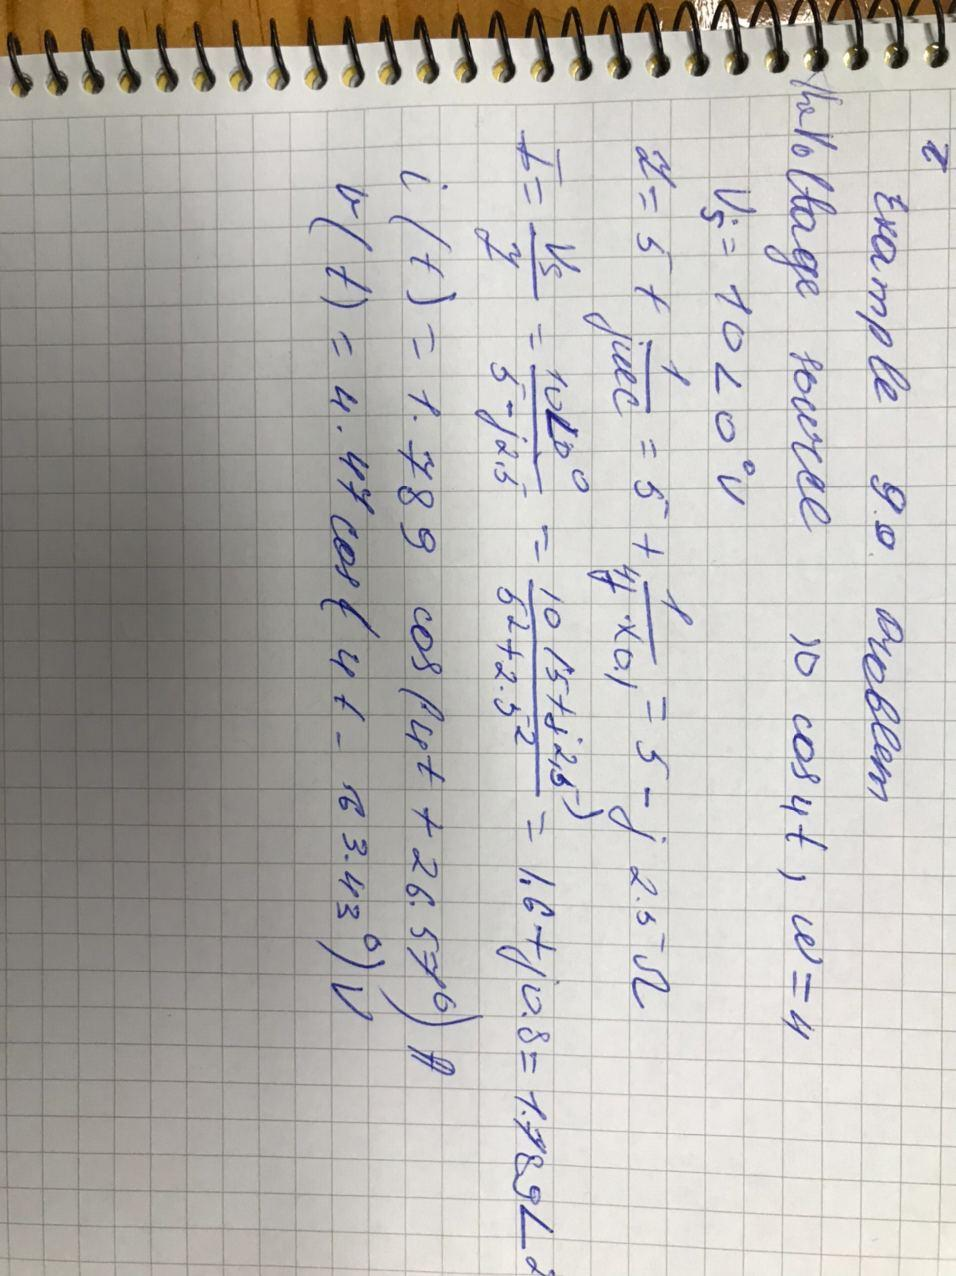 2
Example 9.9. answer
The voltage source 10 cos 4t, ω = 4
Vs = 10∠0° V
Z = 5 + 1/jωC = 5 + 1/(j4×0.1) = 5 - j 2.5 Ω
I = Vs/Z = 10∠0°/(5-j2,5) = 10(5+j2,5)/(5²+2.5²) = 1.6+j0.8 = 1.789∠2
i(t) = 1.789 cos(4t + 26.57°) A
v(t) = 4.47 cos(4t - 63.43°) V